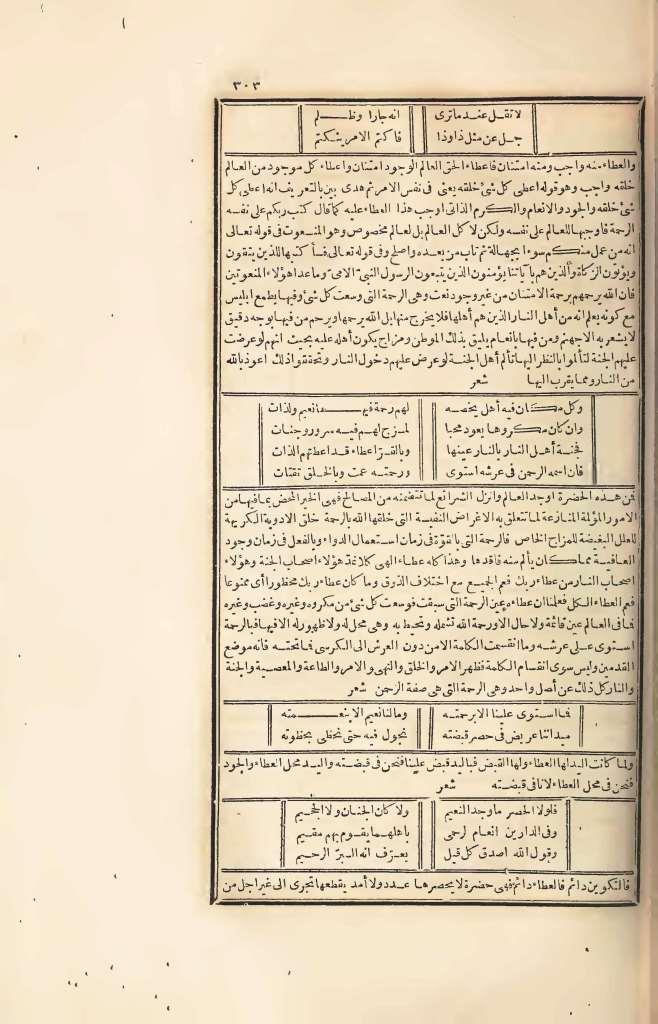 ٣٠٣
لا تقل عند ما ترى انه جارا وظلم
جل عن مثل ذا وذا فاكتم الامر يشكتم
والعطاء منه واجب ومنه امتنان فاعطاء الحق العالم الوجود امتنان واعطاء كل موجود من العالم
خلقه واجب وهو قوله اعطى كل شئ خلقه يعنى فى نفس الامر ثم هدى بين بالتعريف انه اعطى كل
شئ خلقه والجود والانعام والكرم الذاتى اوجب هذا العطاء عليه كما قال كتب ربكم على نفسه
الرحمة فاوجبها للعالم على نفسه ولكن لا كل العالم بل لعالم مخصوص وهو المنعوت فى قوله تعالى
انه من عمل منكم سوءا بجهالة ثم تاب من بعده واصلح وفى قوله تعالى فسأكتبها للذين يتقون
ويؤتون الزكاة والذين هم بآياتنا يؤمنون الذين يتبعون الرسول النبىّ الامىّ وما عدا هؤلاء المنعوتين
فان الله يرحمهم برحمة الامتنان من غير وجود نعت وهى الرحمة التى وسعت كل شئ وفيها يطمع ابليس
مع كونه يعلم انه من أهل النار الذين هم أهلها فلا يخرج منها بل الله يرحمها ويرحم من فيها بوجه دقيق
لا يشعر به الا جهنم ومن فيها بانعام يليق بذلك الموطن ومزاج يكون أهله عليه بحيث انهم لو عرضت
عليهم الجنة لتألموا بالنظر اليها تألم أهل الجنة لو عرض عليهم دخول النار وتحققوا ذلك اعوذ بالله
من النار ومما يقرب اليها شعر
وكل مكان فيه أهل يخصه لهم رحمة فيها نعيم ولذات
وان كان مكروها يعود محبا لمزج لهم فيه سرور وجنات
فجنة أهل النار بالنار عينها وبالقرّ اعطاء قد اعطتهم الذات
فان اسمه الرحمن فى عرشه استوى ورحمته عمت وبالخلق تقتات
فمن هذه الحضرة اوجد العالم وانزل الشرائع لما تتضمنه من المصالح فهى الخير المحض بما فيها من
الامور المؤلمة المنازعة لما تتعلق به الاغراض النفسية التى خلقها الله بالرحمة خلق الادوية الكريهة
للعلل البغيضة للمزاج الخاص فالرحمة التى بالقوة فى زمان استعمال الدواء وبالفعل فى زمان وجود
العافية مما كان يألم منه فاقدها وهذا كله عطاء الهى كلا نمد هؤلاء اصحاب الجنة وهؤلاء
اصحاب النار من عطاء ربك فعم الجميع مع اختلاف الذوق وما كان عطاء ربك محظورا أى ممنوعا
فعم العطاء الكل فعلمنا ان عطاءه عين الرحمة التى سبقت فوسعت كل شئ من مكروه وغيره وغضب وغيره
فما فى العالم عين قائمة ولا حال الا ورحمة الله تشمله وتحيط به وهى محل له ولا ظهور له الا فيها فبالرحمة
استوى على عرشه وما انقسمت الكلمة الا من دون العرش الى الكرسى فما تحته فانه موضع
القدمين وليس سوى انقسام الكلمة فظهر الامر والخلق والنهى والامر والطاعة والمعصية والجنة
والنار كل ذلك عن أصل واحد وهى الرحمة التى هى صفة الرحمن شعر
فما استوى علينا الا برحمته وما لنا نعيم الا بنعمته
ميداننا عريض فى حصر قبضته نجول فيه حتى نحظى بحظوته
ولما كانت اليد لها العطاء ولها القبض فباليد قبض علينا فنحن فى قبضته واليد محل العطاء والجود
فنحن فى محل العطاء لانا فى قبضته شعر
فلولا الحصر ما وجد النعيم ولا كان الجنان ولا الجحيم
وفى الدارين انعام لرحمى باهلهما يقوم بهم مقيم
وقول الله اصدق كل قيل يعرّف انه البرّ الرحيم
فالتكوين دائم فالعطاء دائم فهى حضرة لا يحصرها عدد ولا أمد يقطعها تجرى الى غير اجل من